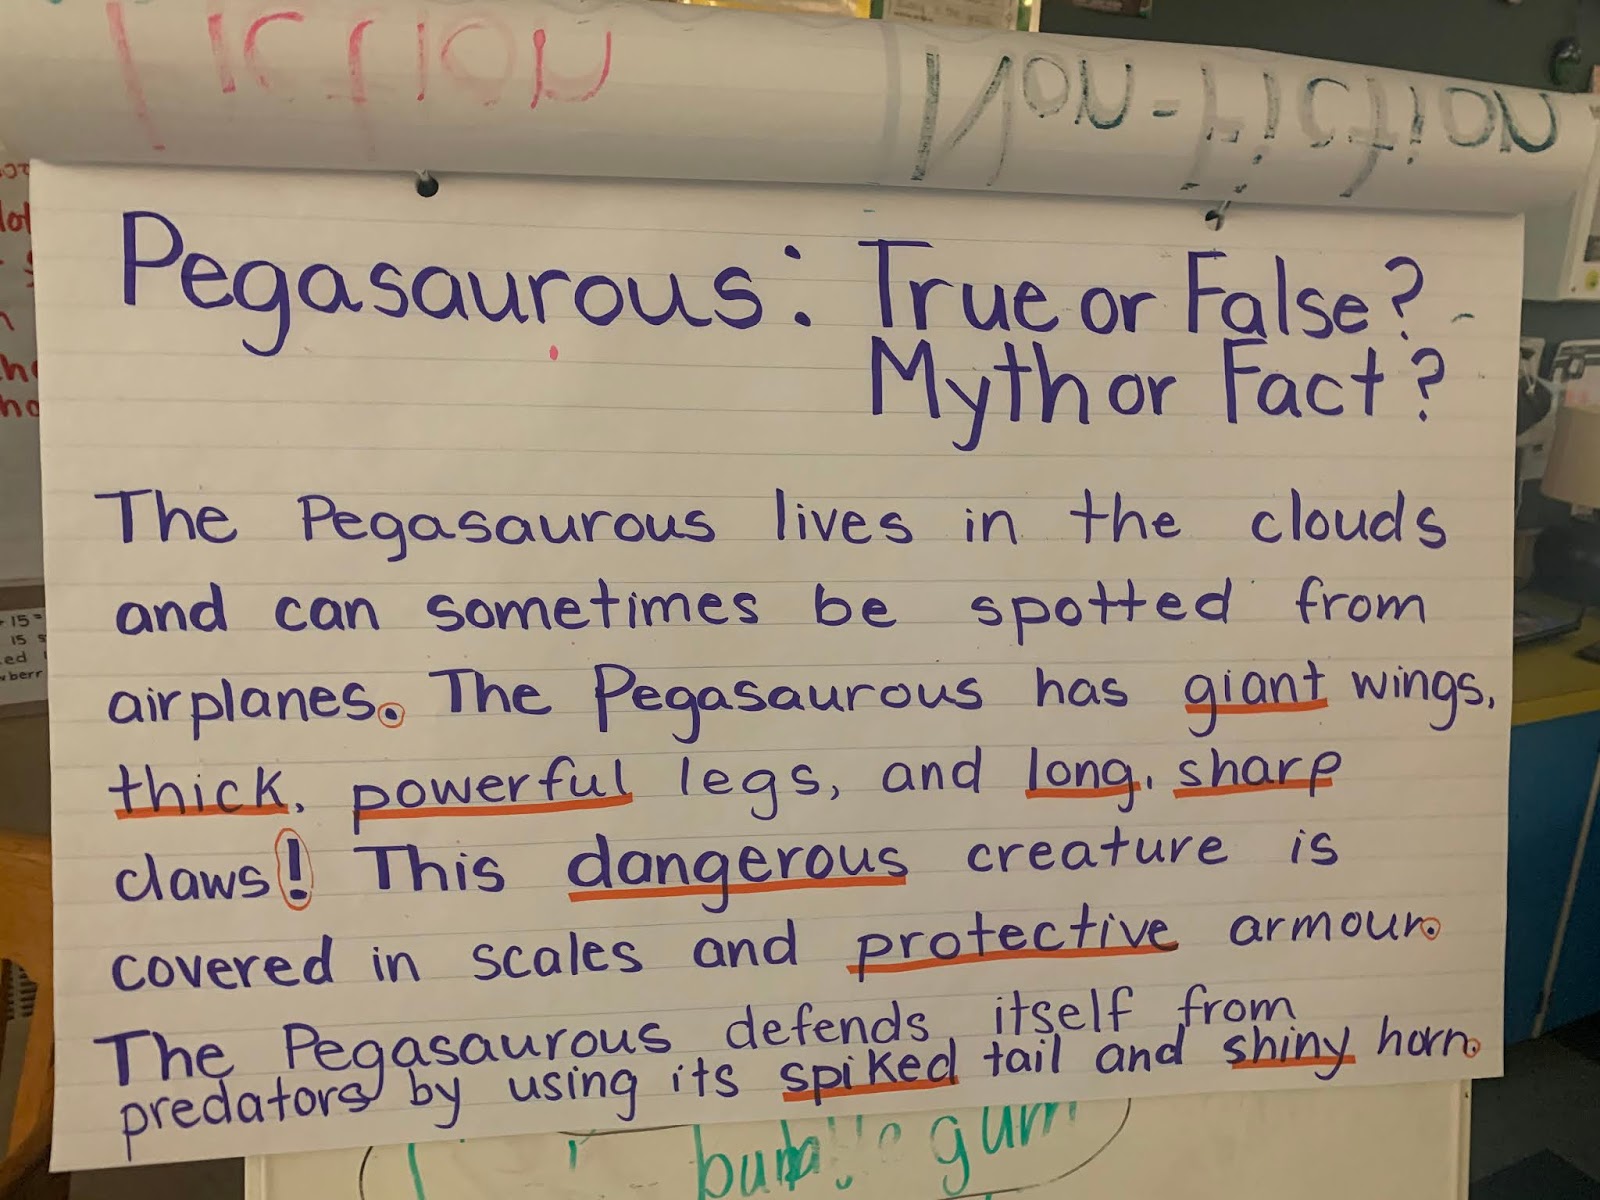 Fiction Non-Fiction
Pegasaurous: True or False?
Myth or Fact?
The Pegasaurous lives in the clouds
and can sometimes be spotted from
airplanes. The Pegasaurous has giant wings,
thick, powerful legs, and long, sharp
claws! This dangerous creature is
covered in scales and protective armour.
The Pegasaurous defends itself from
predators by using its spiked tail and shiny horn.
bubble gum